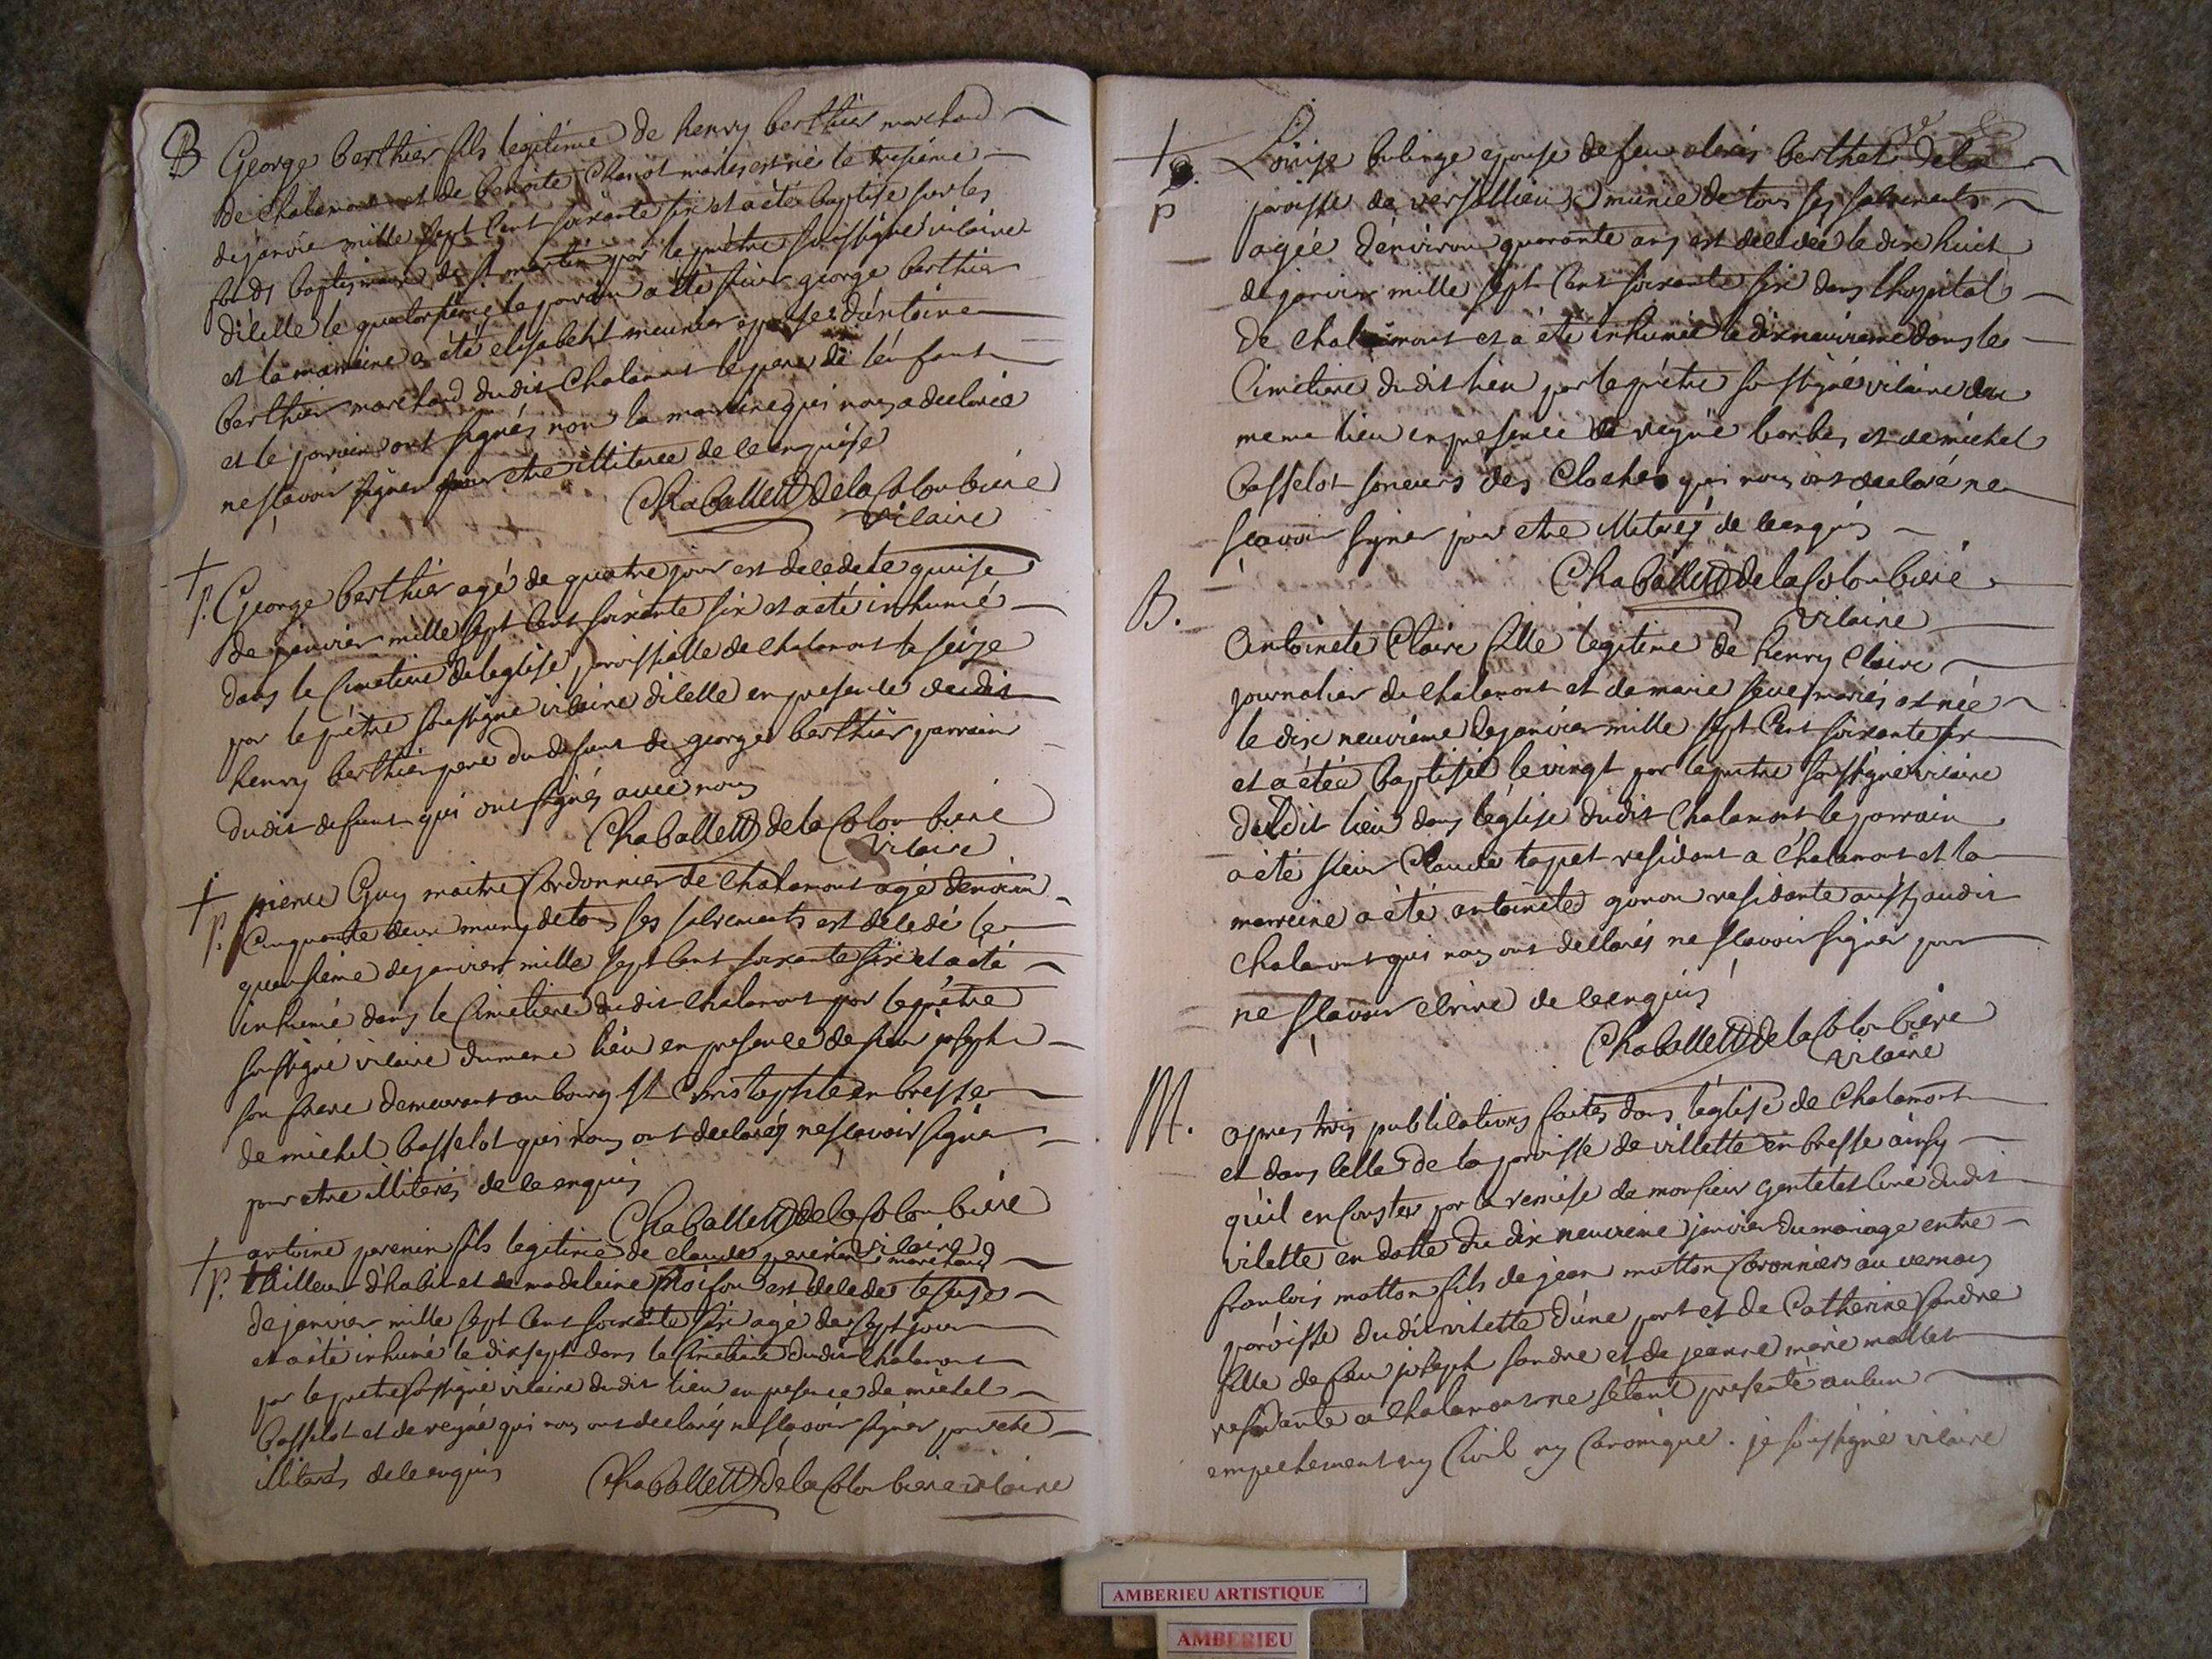 B George berthier fils legitime de henry berthier marchand
de Chalamont et de benoite Chanot mariés est né le tresiéme
de janvié mille sept cent soixante six et a été baptisé sur les
fonds baptismaux de st martin par le prêtre soussigné vicaire
d'icelle le quatorsieme le parrain a été sieur george berthier
et la marraine a été elisabeht meunier epouse d'antoine
berthier marchand dudit Chalamont le pere de l'enfant
et le parrain ont signés non la marraine qui nous a declaré
ne sçavoir signer pour etre illiterée de ce enquise
Chaballett de la Coloubiere
vicaire
† p. George berthier agé de quatre jour est decedé le quinse
de janvier mille sept cent soixante six et a été inhumé
dans le Cimetiere de leglise paroissialle de chalamont le seize
par le prêtre soussigné vicaire d'icelle en presence dudit
henry berthier pere du defunt de george berthier parrain
dudit defunt qui ont signés avec nous
Chaballett de la Coloubiere
vicaire
† p. pierre Guy maitre Cordonnier de Chalamont agé d'environ
Cinquante deux muny de tous ses sacrements est decedé le
quinsieme de janvier mille sept cent soixante six et a été
inhumé dans le Cimetiere dudit chalamont par le prêtre
soussigné vicaire du meme lieu en presence de sieur joseph
son frere demeurant au bourg st Christophle en bresse
de michel basselot qui nous ont declarés ne sçavoir signer
pour etre illiterés de ce enquis
Chaballett de la Coloubiere
vicaire
† p. antoine perenin fils legitime de claude perenin marchand
tailleur d'habit et de madeleine est decedé le seise
de janvier mille sept cent soixante six agé de sept jour
et a été inhumé le dix sept dans le Cimetiere dudit Chalamont
par le pretre soussigné vicaire dudit lieu en presence de michel
basselot et de regné qui nous ont declarés ne sçavoir signer pour etre
illiterés de ce enquis Chaballett de la Coloubiere vicaire
† p Louise bulinge epouse de feu alexis berthet de la
paroisse de versallieux munie de tous ses sacrements
agée d'environ quarante ans est decedée le dix huict
de janvier mille sept cent soixante six dans lhopital
de chalamont et a été inhumée le dix neuvieme dans le
Cimetiere dudit lieu par le prêtre soussigné vicaire du
meme lieu en presence de regné barbes et de michel
basselot soneurs des Cloches qui nous ont declaré ne
sçavoir signer pour etre illiterés de ce enquis
Chaballett de la Coloubiere
vicaire
B. Antoinete Claire fille legitime de henry Claire
journalier de chalamont et de marie seve mariés est née
le dix neuvieme de janvier mille sept cent soixante six
et a étée baptisée le vingt par le prêtre soussigné vicaire
dudit lieu dans l'église dudit Chalamont le parrain
a été sieur Claude tapet residant a Chalamont et la
marreine a été antoinete gonon residante aussy audit
chalamont qui nous ont declarés ne sçavoir signer pour
ne sçavoir écrire de ce enquis
Chaballett de la Coloubiere
vicaire
M. apres trois publications faites dans l'église de Chalamont
et dans celle de la paroisse de villette en bresse ainsy
qu'il en conste par la remise de monsieur gentetet curé dudit
vilette en datte du dix neuvieme janvier du mariage entre
francois matton fils de jean matton au vernay
paroisse dudit vilette d'une part et de Catherine sandre
fille de feu joseph sandre et de jeanne marie mallet
residante a chalamont ne s'étant presenté aucun
empechement ny Civil ny Canonique. je soussigné vicaire
AMBERIEU ARTISTIQUE
AMBERIEU